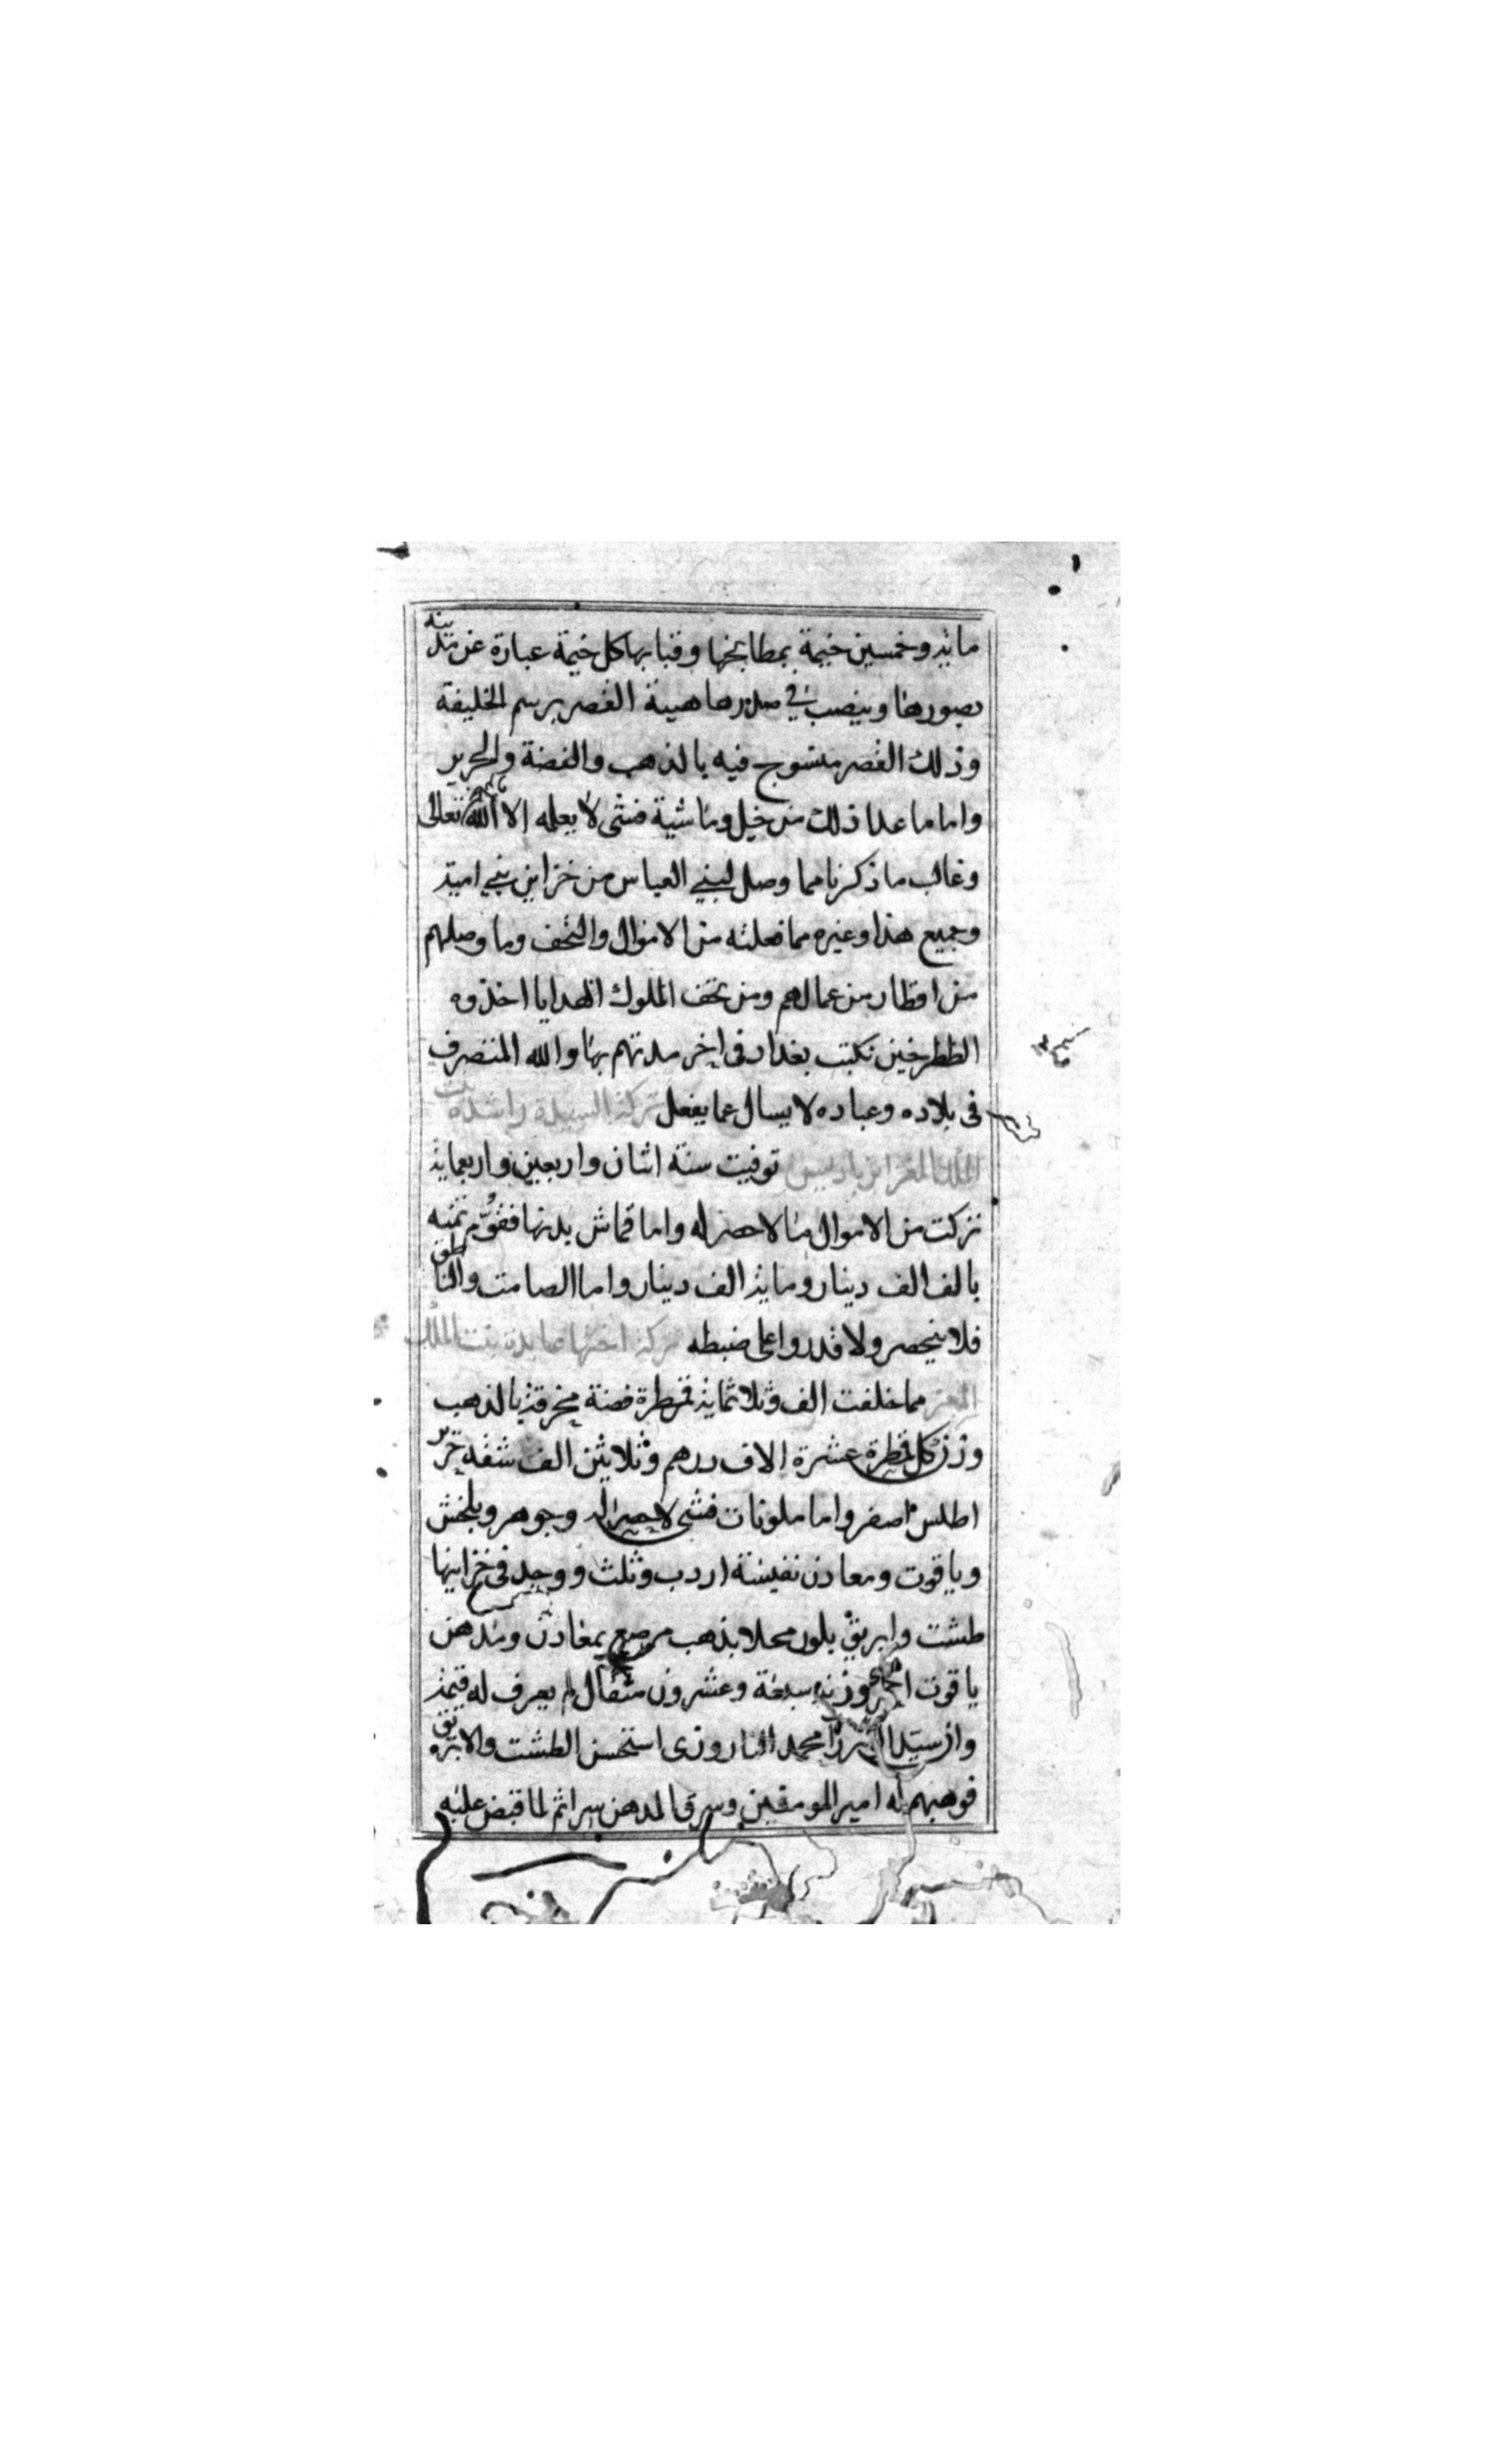 مايه وخمسين خيمة بمطابخها وقبابها كل خيمة عبارة عن مدينه
بصورها وينصب في صدرها هيئة القصر برسم الخليفة
وذلك القصر منسوج فيه بالذهب والفضة والحرير
واما ما عدا ذلك من خيل وماشية فشى لا يعلمه الا الله تعالى
وغالب ما ذكرنا مما وصل لبني العباس من خزاين بني امية
وجميع هذا وغيره مما فعلته من الاموال والتحف وما وصلهم
من اقطار من عمالهم ومن تحف الملوك الهدايا اخذوه
الططر حين نكبت بغداد في اخر مدتهم بها والله المتصرف
في بلاده وعباده لا يسال عما يفعل تركة السيدة راشدة بنت
الملك المعز ابن باديس توفيت سنة اثنان واربعين واربعماية
تركت من الاموال ما لا حصر له واما قماش بدنها فقُوّم ثمنه
بالف الف دينار وماية الف دينار واما الصامت والناطق
فلا ينحصر ولا قدروا على ضبطه تركة اختها عابدة بنت الملك
المعز مما خلفت الف وثلاثماية قمطرة فضة مخرقة بالذهب
وزن كل قمطرة عشرة الاف درهم وثلاثين الف شقه حرير
اطلس اصفر واما ملونات فشى لا حصر له وجوهر وبلخش
وياقوت ومعادن نفيسة اردب وثلث ووجد في خزاينها
طشت وابريق بلور محلا بذهب مرصع بمعادن ومدهن
ياقوت احمر وزنه سبعة وعشرون مثقال لم يعرف له قيمة
محمد استحسن الطشت والابريق
فوهبهم له امير المومنين وسرق المدهن سرا ثم لما قبض عليه